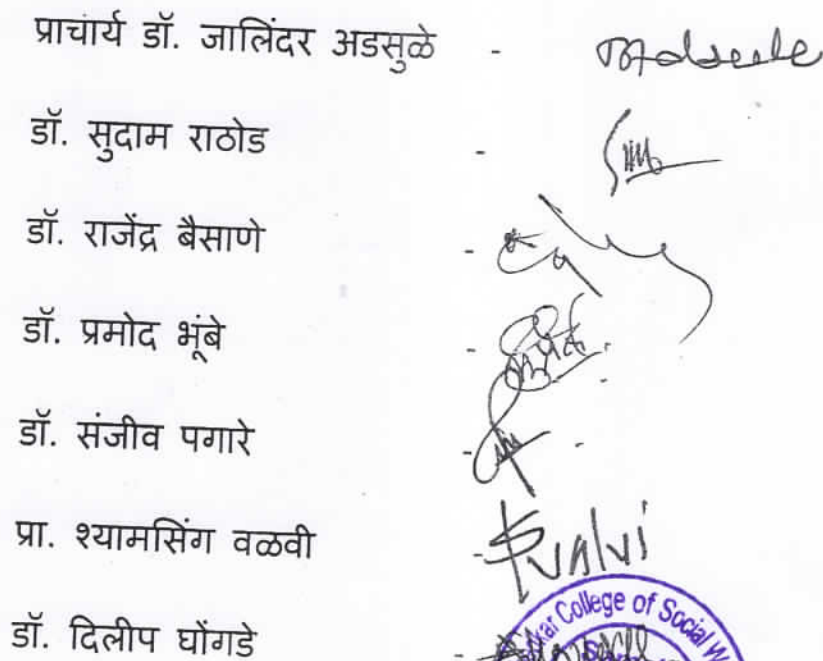 प्राचार्य डॉ. जालिंदर अडसुळे -
डॉ. सुदाम राठोड -
डॉ. राजेंद्र बैसाणे -
डॉ. प्रमोद भूंबे -
डॉ. संजीव पगारे -
प्रा. श्यामसिंग वळवी - Svalvi
डॉ. दिलीप घोंगडे -
College of Social